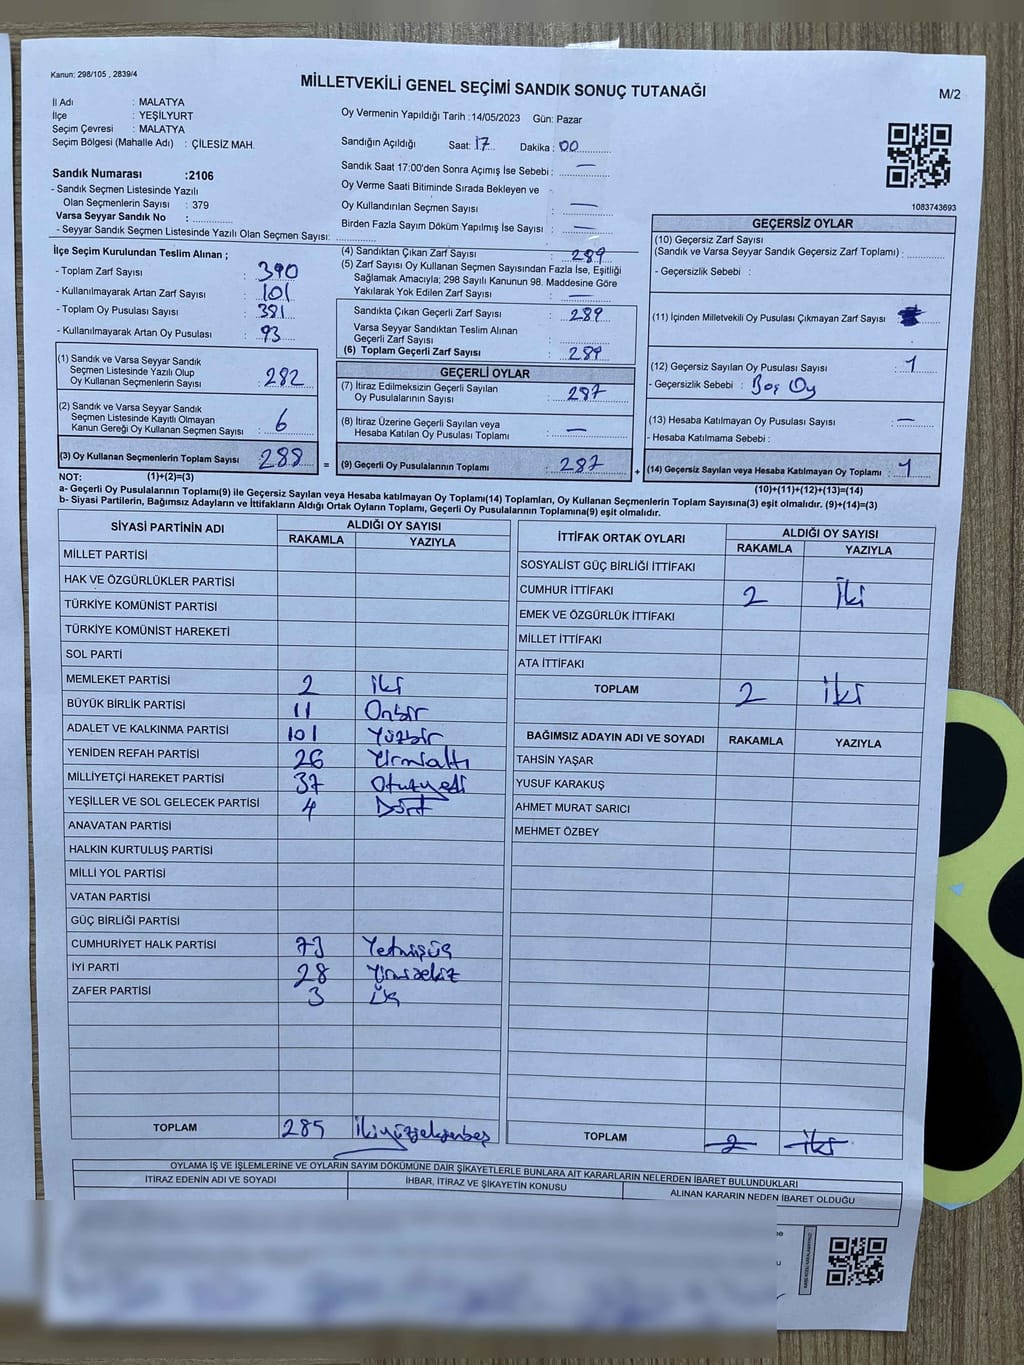 Kanun: 298/105 , 2839/4
MİLLETVEKİLİ GENEL SEÇİMİ SANDIK SONUÇ TUTANAĞI
M/2
İl Adı : MALATYA
İlçe : YEŞİLYURT
Seçim Çevresi : MALATYA
Seçim Bölgesi (Mahalle Adı) : ÇİLESİZ MAH.
Sandık Numarası :2106
- Sandık Seçmen Listesinde Yazılı
Olan Seçmenlerin Sayısı : 379
Varsa Seyyar Sandık No :
- Seyyar Sandık Seçmen Listesinde Yazılı Olan Seçmen Sayısı:
Oy Vermenin Yapıldığı Tarih :14/05/2023 Gün: Pazar
Sandığın Açıldığı Saat: 17 Dakika : 00
Sandık Saat 17:00'den Sonra Açımış İse Sebebi : —
Oy Verme Saati Bitiminde Sırada Bekleyen ve
Oy Kullandırılan Seçmen Sayısı —
Birden Fazla Sayım Döküm Yapılmış İse Sayısı —
1083743693
İlçe Seçim Kurulundan Teslim Alınan ;
- Toplam Zarf Sayısı : 390
- Kullanılmayarak Artan Zarf Sayısı : 101
- Toplam Oy Pusulası Sayısı : 381
- Kullanılmayarak Artan Oy Pusulası : 93
(1) Sandık ve Varsa Seyyar Sandık
Seçmen Listesinde Yazılı Olup
Oy Kullanan Seçmenlerin Sayısı : 282
(2) Sandık ve Varsa Seyyar Sandık
Seçmen Listesinde Kayıtlı Olmayan
Kanun Gereği Oy Kullanan Seçmen Sayısı : 6
(3) Oy Kullanan Seçmenlerin Toplam Sayısı : 288
(4) Sandıktan Çıkan Zarf Sayısı : 289
(5) Zarf Sayısı Oy Kullanan Seçmen Sayısından Fazla İse, Eşitliği
Sağlamak Amacıyla; 298 Sayılı Kanunun 98. Maddesine Göre
Yakılarak Yok Edilen Zarf Sayısı : —
Sandıkta Çıkan Geçerli Zarf Sayısı : 289
Varsa Seyyar Sandıktan Teslim Alınan
Geçerli Zarf Sayısı :
(6) Toplam Geçerli Zarf Sayısı : 289
GEÇERLİ OYLAR
(7) İtiraz Edilmeksizin Geçerli Sayılan
Oy Pusulalarının Sayısı : 287
(8) İtiraz Üzerine Geçerli Sayılan veya
Hesaba Katılan Oy Pusulası Toplamı : —
= (9) Geçerli Oy Pusulalarının Toplamı : 287 +
GEÇERSİZ OYLAR
(10) Geçersiz Zarf Sayısı
(Sandık ve Varsa Seyyar Sandık Geçersiz Zarf Toplamı) :
- Geçersizlik Sebebi :
(11) İçinden Milletvekili Oy Pusulası Çıkmayan Zarf Sayısı :
(12) Geçersiz Sayılan Oy Pusulası Sayısı : 1
- Geçersizlik Sebebi : Boş Oy
(13) Hesaba Katılmayan Oy Pusulası Sayısı : —
- Hesaba Katılmama Sebebi :
(14) Geçersiz Sayılan veya Hesaba Katılmayan Oy Toplamı : 1
NOT: (1)+(2)=(3)
(10)+(11)+(12)+(13)=(14)
a- Geçerli Oy Pusulalarının Toplamı(9) ile Geçersiz Sayılan veya Hesaba katılmayan Oy Toplamı(14) Toplamları, Oy Kullanan Seçmenlerin Toplam Sayısına(3) eşit olmalıdır. (9)+(14)=(3)
b- Siyasi Partilerin, Bağımsız Adayların ve İttifakların Aldığı Ortak Oyların Toplamı, Geçerli Oy Pusulalarının Toplamına(9) eşit olmalıdır.
SİYASİ PARTİNİN ADI ALDIĞI OY SAYISI
RAKAMLA YAZIYLA
MİLLET PARTİSİ
HAK VE ÖZGÜRLÜKLER PARTİSİ
TÜRKİYE KOMÜNİST PARTİSİ
TÜRKİYE KOMÜNİST HAREKETİ
SOL PARTİ
MEMLEKET PARTİSİ 2 iki
BÜYÜK BİRLİK PARTİSİ 11 Onbir
ADALET VE KALKINMA PARTİSİ 101 Yüzbir
YENİDEN REFAH PARTİSİ 26 Yirmialtı
MİLLİYETÇİ HAREKET PARTİSİ 37 Otuzyedi
YEŞİLLER VE SOL GELECEK PARTİSİ 4 Dört
ANAVATAN PARTİSİ
HALKIN KURTULUŞ PARTİSİ
MİLLİ YOL PARTİSİ
VATAN PARTİSİ
GÜÇ BİRLİĞİ PARTİSİ
CUMHURİYET HALK PARTİSİ 73 Yetmişüç
İYİ PARTİ 28 Yirmisekiz
ZAFER PARTİSİ 3 üç
TOPLAM 285 İkiyüzseksenbeş
İTTİFAK ORTAK OYLARI ALDIĞI OY SAYISI
RAKAMLA YAZIYLA
SOSYALİST GÜÇ BİRLİĞİ İTTİFAKI
CUMHUR İTTİFAKI 2 İki
EMEK VE ÖZGÜRLÜK İTTİFAKI
MİLLET İTTİFAKI
ATA İTTİFAKI
TOPLAM 2 iki
BAĞIMSIZ ADAYIN ADI VE SOYADI RAKAMLA YAZIYLA
TAHSİN YAŞAR
YUSUF KARAKUŞ
AHMET MURAT SARICI
MEHMET ÖZBEY
TOPLAM 2 iki
OYLAMA İŞ VE İŞLEMLERİNE VE OYLARIN SAYIM DÖKÜMÜNE DAİR ŞİKAYETLERLE BUNLARA AİT KARARLARIN NELERDEN İBARET BULUNDUKLARI
İTİRAZ EDENİN ADI VE SOYADI İHBAR, İTİRAZ VE ŞİKAYETİN KONUSU ALINAN KARARIN NEDEN İBARET OLDUĞU